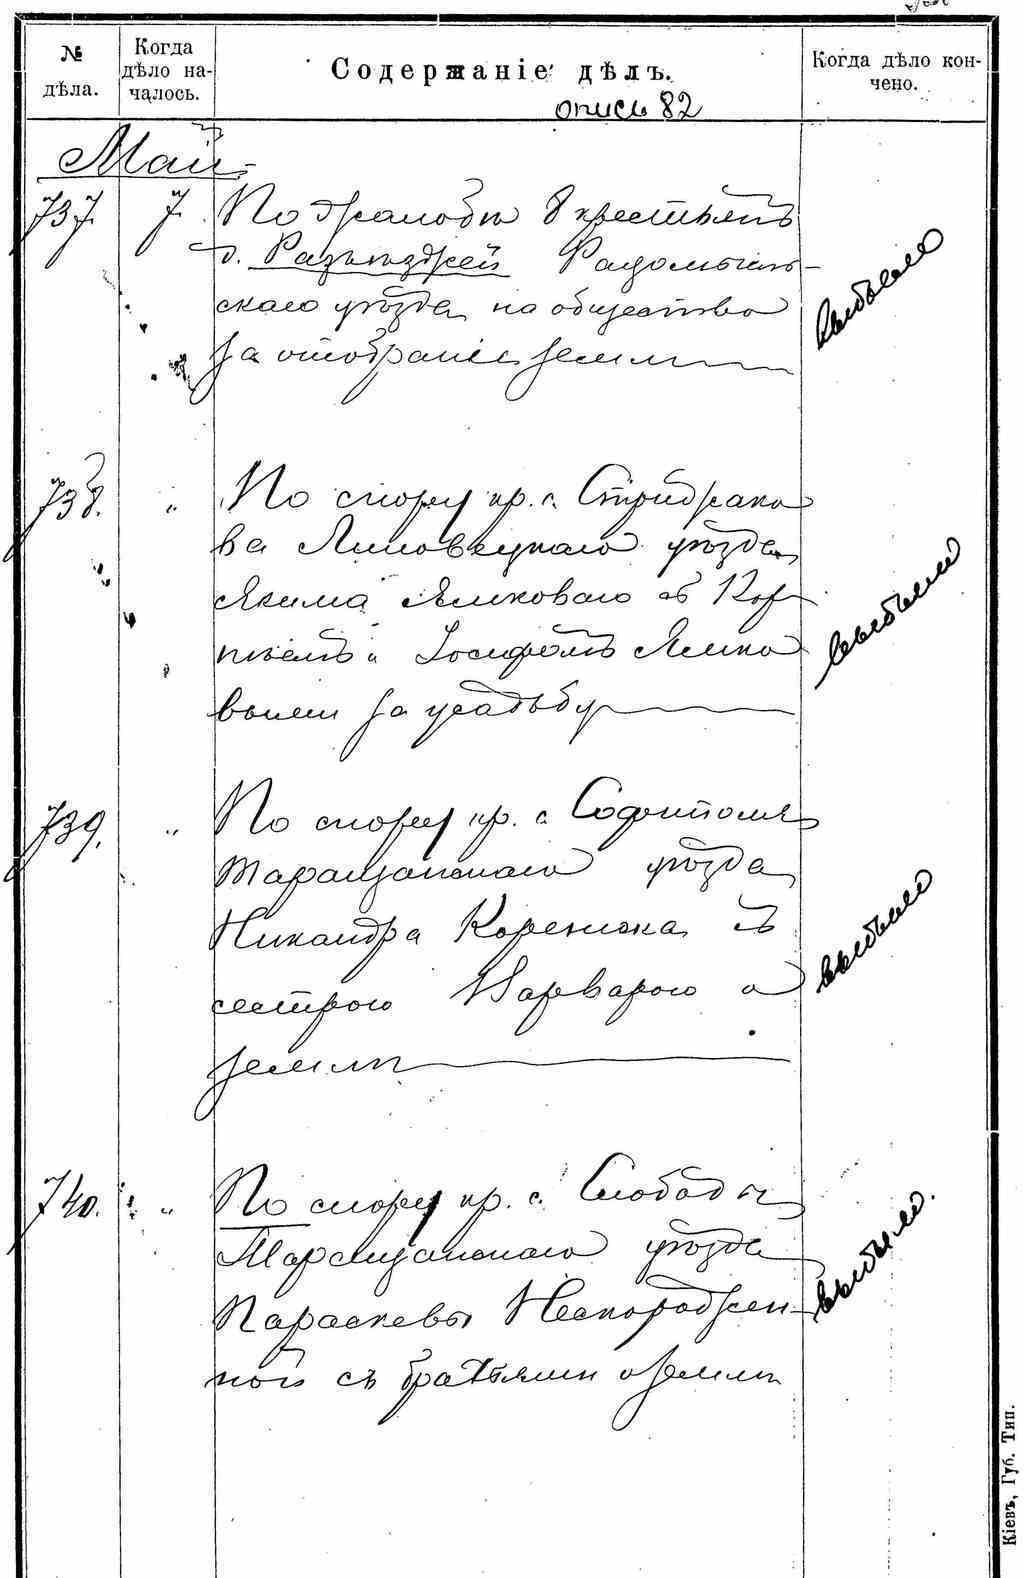 № дѣла.
Когда дѣло началось.
Содержаніе дѣлъ.
Когда дѣло кончено.
опись 82
Май
737. 7. По жалобѣ 8 крестьянъ
д. Разъѣзжей Радомысль-
скаго уѣзда на общество
за отобраніе земли
выбыло
738. „ По спору кр. с. Стрижако
ва Липовецкаго уѣзда
Якима Яликоваго съ Кор
нѣемъ и ІосифомъЯлико
выми за усадьбу
выбыли
739. „ По спору кр. с. Софиполя
Таращанскаго уѣзда
Никандра Коренюка съ
сестрою Варварою о
землѣ
выбыло
740. „ По спору кр. с. Слободы
Таращанскаго уѣзда
Параскевы Нескорожен-
ной съ братьями о землѣ
выбыло.
Кіевъ, Губ. Тип.